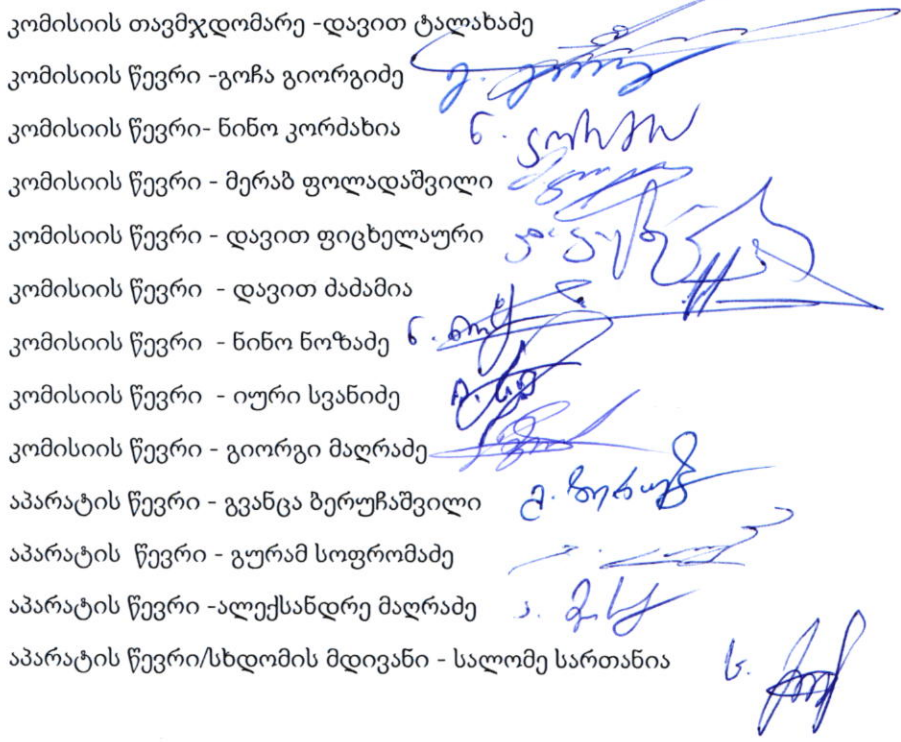 კომისიის თავმჯდომარე -დავით ტალახაძე
კომისიის წევრი -გოჩა გიორგიძე
კომისიის წევრი- ნინო კორძახია
კომისიის წევრი - მერაბ ფოლადაშვილი
კომისიის წევრი - დავით ფიცხელაური
კომისიის წევრი - დავით ძაძამია
კომისიის წევრი - ნინო ნოზაძე
კომისიის წევრი - იური სვანიძე
კომისიის წევრი - გიორგი მაღრაძე
აპარატის წევრი - გვანცა ბერუჩაშვილი
აპარატის წევრი - გურამ სოფრომაძე
აპარატის წევრი -ალექსანდრე მაღრაძე
აპარატის წევრი/სხდომის მდივანი - სალომე სართანია